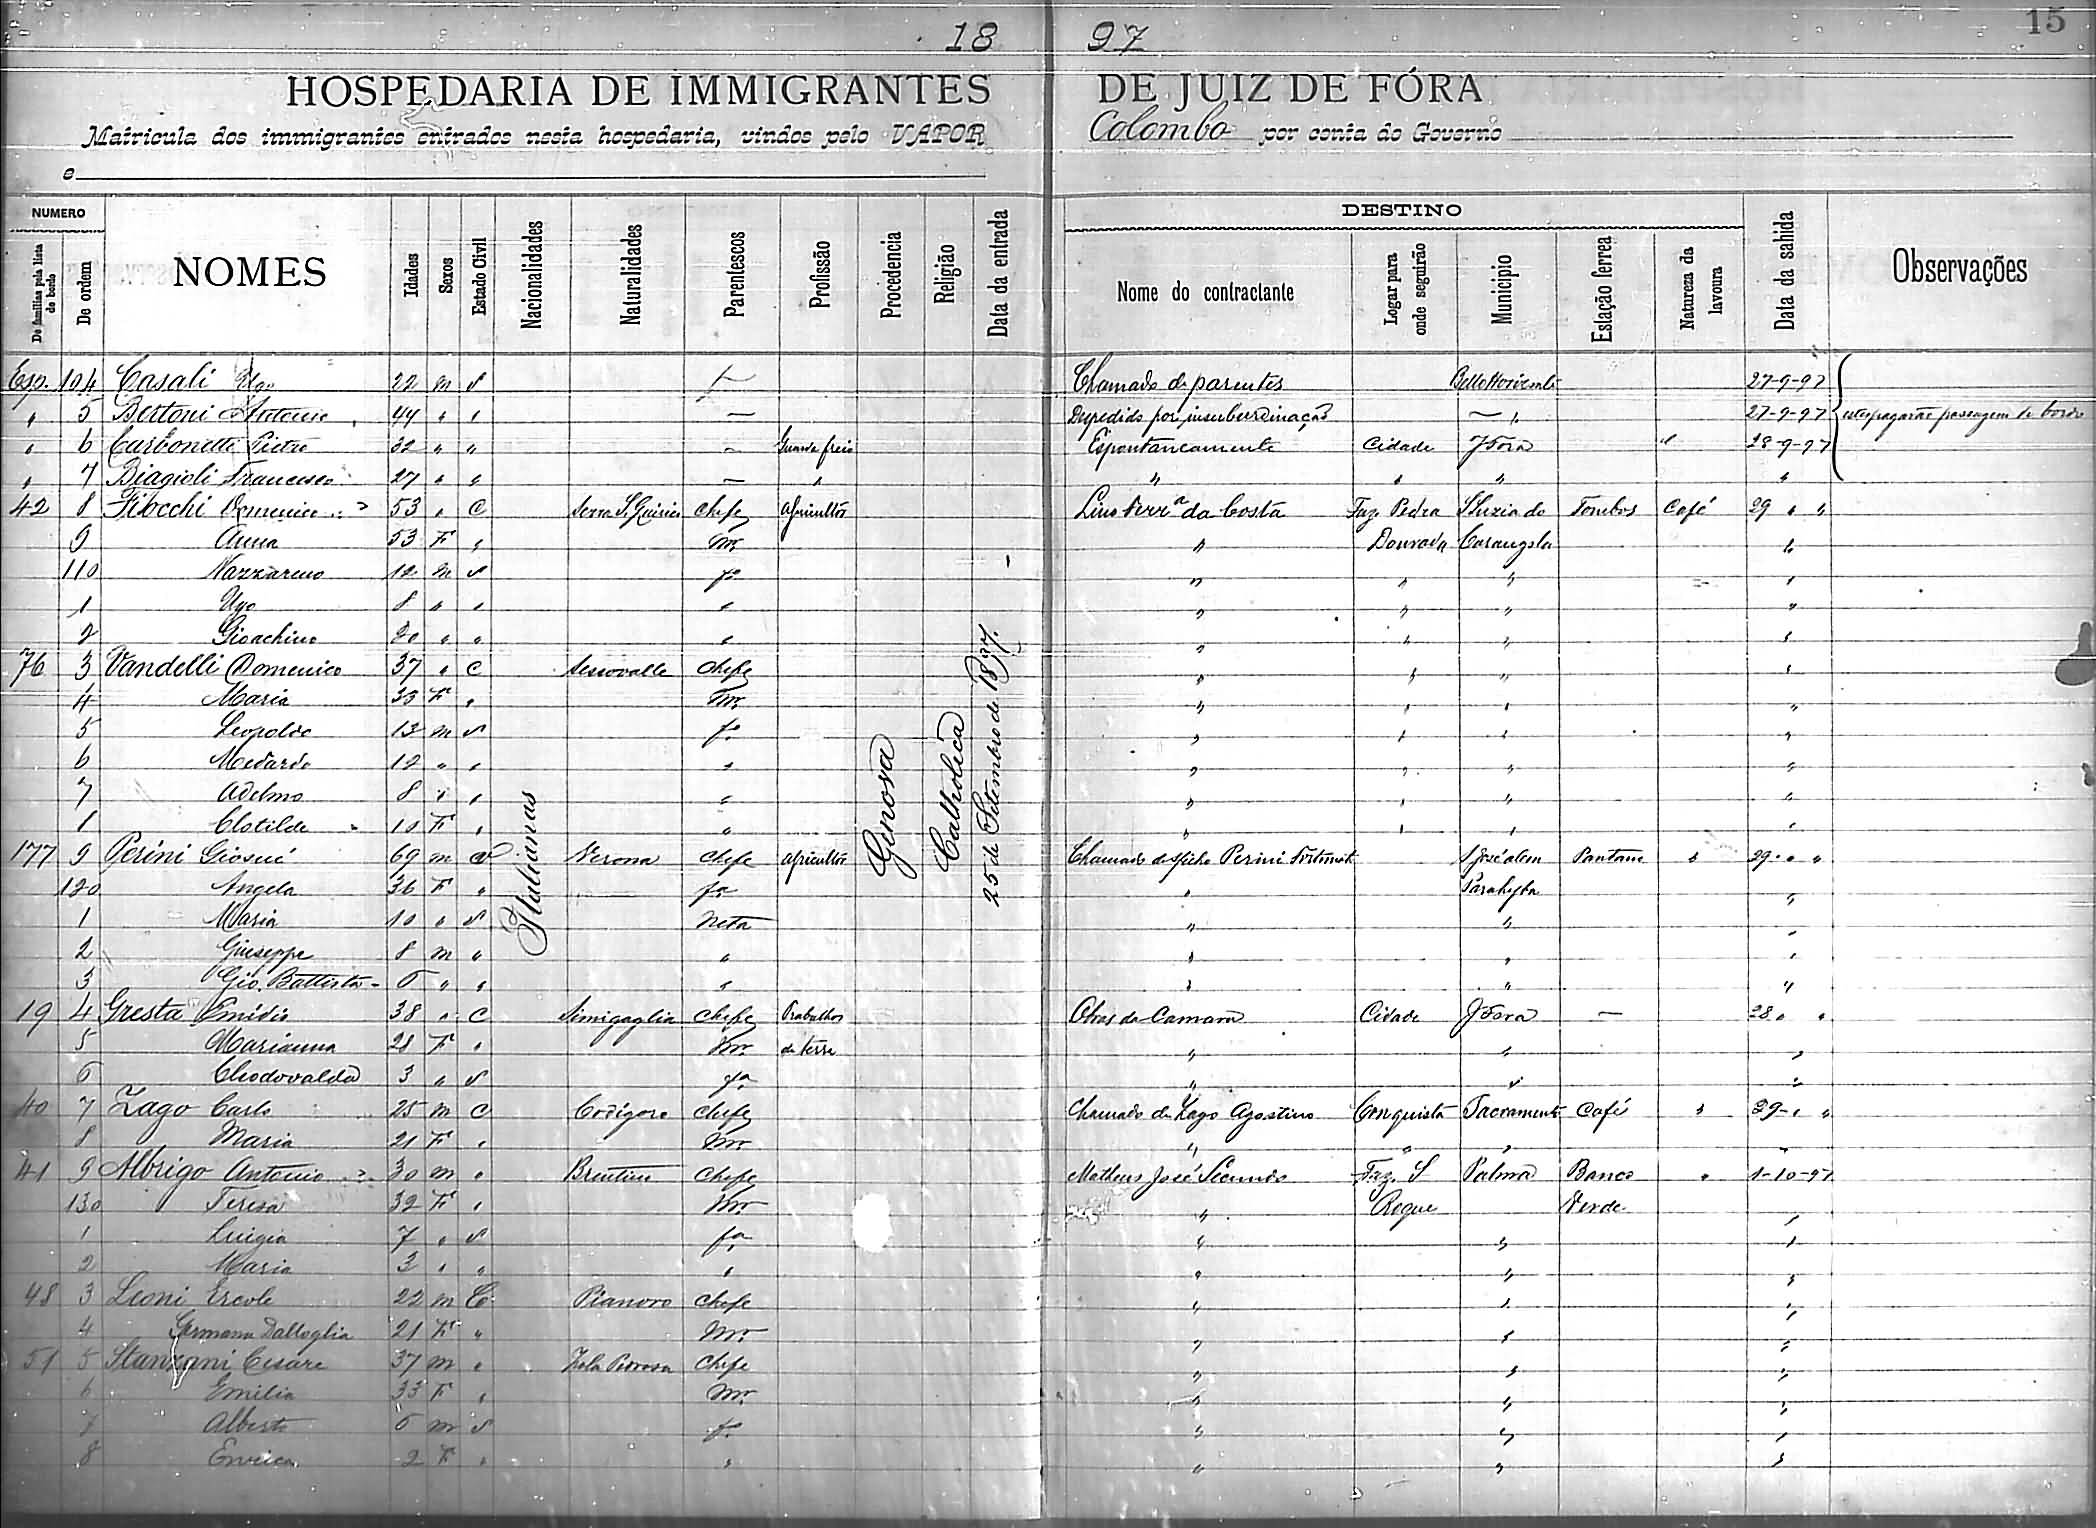 15
18 97
HOSPEDARIA DE IMMIGRANTES DE JUIZ DE FÓRA
Matricula dos immigrantes entrados nesta hospedaria, vindos pelo VAPOR Colombo por conta do Governo
e
NUMERO DESTINO
De familias pela lista de bordo De ordem NOMES Idades Sexos Estado Civil Nacionalidades Naturalidades Parentescos Profissão Procedencia Religião Data da entrada Nome do contractante Logar para onde seguirão Municipio Estação ferrea Natureza da lavoura Data da sahida Observações
Esp. 104 Casali Ugo 22 m s — Chamado de parentes Bello Horizonte 27-9-97
" 5 Bertoni Antonio 44 " " — Despedido por insubordinação — " 27-9-97 passagem de bordo
" 6 Carbonetti Pietro 32 " " — Guarda freio Espontaneamente Cidade J Fora " 28-9-97
" 7 Biagioli Francesco 27 " " — " " " " "
42 8 Fiocchi Domenico 53 " C Serra S. Quirico Chefe agricultor Lino Ferra da Costa Faz. Pedra S Luzia do Tombos Café 29 " "
9 Anna 53 F " Mr. " Dourada Carangola "
110 Nazzareno 12 m s fo " " " "
1 Ugo 8 " " " " " " "
2 Gioachino 20 " " " " " " "
76 3 Vandelli Domenico 37 " C Chefe " " " "
4 Maria 33 F " Mr. " " " "
5 Leopoldo 13 m s fo " " " "
6 Medardo 12 " " " " " " "
7 Adelmo 8 " " " " " " "
1 Clotilde 10 F " " " " " "
177 9 Perini Giosué 69 m Verona Chefe agricultor Chamado de filho Perini S José alem Pantano " 29 " "
120 Angela 36 F " fa " Parahyba "
1 Maria 10 " s Neta " " "
2 Giuseppe 8 m " " " " "
3 Gio. Battista 6 " " " " " "
19 4 Gresta Emidio 38 " C Sinigaglia Chefe Trabalhos Obras da Camara Cidade J Fora — 28 " "
5 Marianna 28 F " Mr. de terra " " "
6 Clodovalda 3 " s fa " " "
40 7 Zago Carlo 25 m C Codigoro Chefe Chamado de Zago Agostino Conquista Sacramento Café " 29 " "
8 Maria 21 F " Mr. " " " "
41 9 Albrigo Antonio 30 m " Brentino Chefe Matheus José Secundo Faz. S Palma Banco " 1-10-97
130 Teresa 32 F " Mr. " Roque Verde "
1 Luigia 7 " s fa " " "
2 Maria 3 " " " " " "
48 3 Leoni Ercole 22 m C Pianoro Chefe " " "
4 Germana Dalloglia 21 F " Mr. " " "
51 5 Stanzani Cesare 37 m " Zola Pedrosa Chefe " " "
6 Emilia 33 F " Mr. " " "
7 Alberto 6 m s fo " " "
8 Enrica 2 F " " " " "
Italianas
Genova
Catholica
25 de Setembro de 1897.